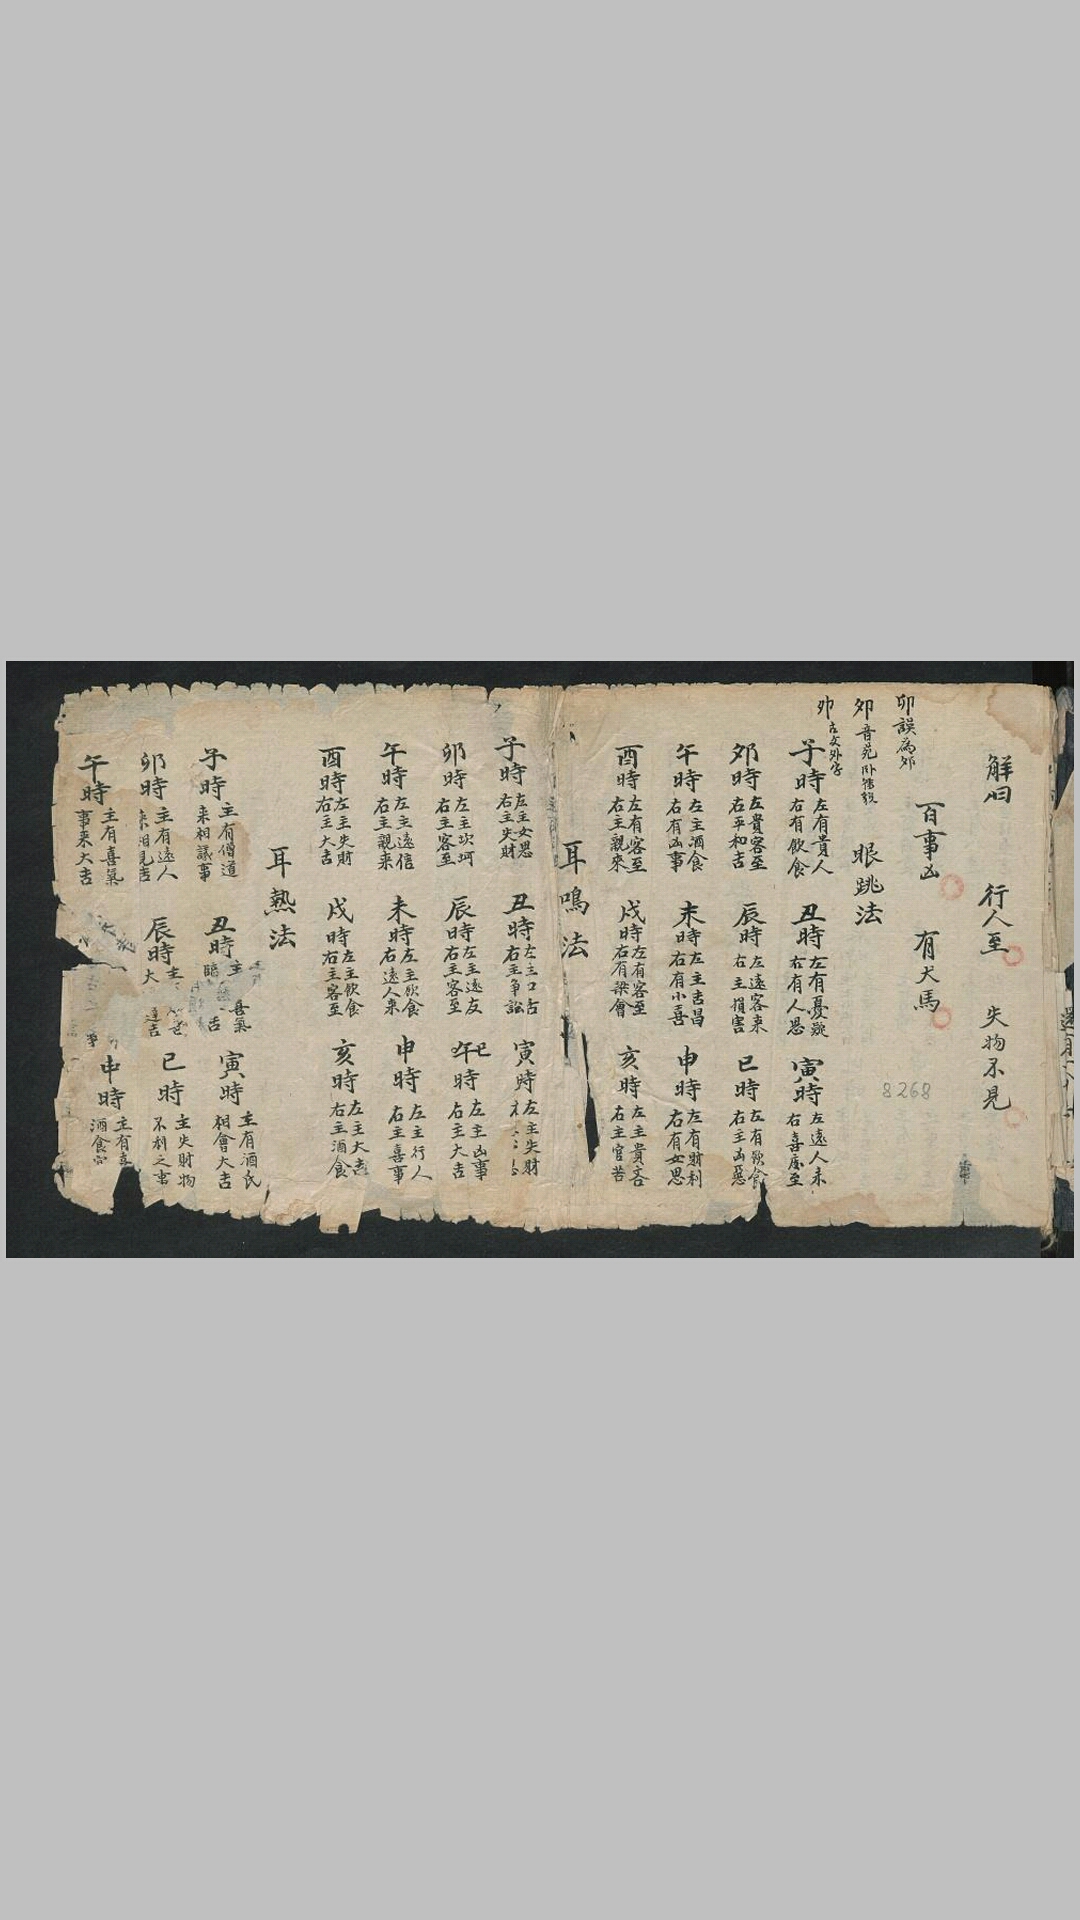 解曰 行人至 失物不見
百事凶 有犬馬
卯誤為夘
夘音苑卧
眼跳法
戼古文外字
子時 左有貴人 右有飲食
丑時 左有憂疑 右有人思
寅時 左遠人来 右喜慶至
夘時 左貴客至 右平和吉
辰時 左遠客来 右主損害
巳時 左有飲食 右主凶惡
午時 左主酒食 右有凶事
未時 左主吉昌 右有小喜
申時 左有財利 右有女思
酉時 左有客至 右主親來
戌時 左有客至 右有梁會
亥時 左主貴客 右主官苦
耳鳴法
子時 左主女思 右主失財
丑時 左主口舌 右主争訟
寅時 左主失財
卯時 左主坎坷 右主客至
辰時 左主遠友 右主客至
巳時 左主凶事 右主大吉
午時 左主遠信 右主親来
未時 左主飲食 右遠人来
申時 左主行人 右主喜事
酉時 左主失財 右主大吉
戌時 左主飲食 右主客至
亥時 左主大吉 右主酒食
耳熱法
子時 主有僧道 来相議事
丑時 主 喜氣 臨 吉
寅時 主有酒氏 相會大吉
卯時 主有遠人 来相見吉
辰時 主 大吉
巳時 主失財物 不利之事
午時 主有喜氣 事来大吉
申時 主有喜 酒食
8268